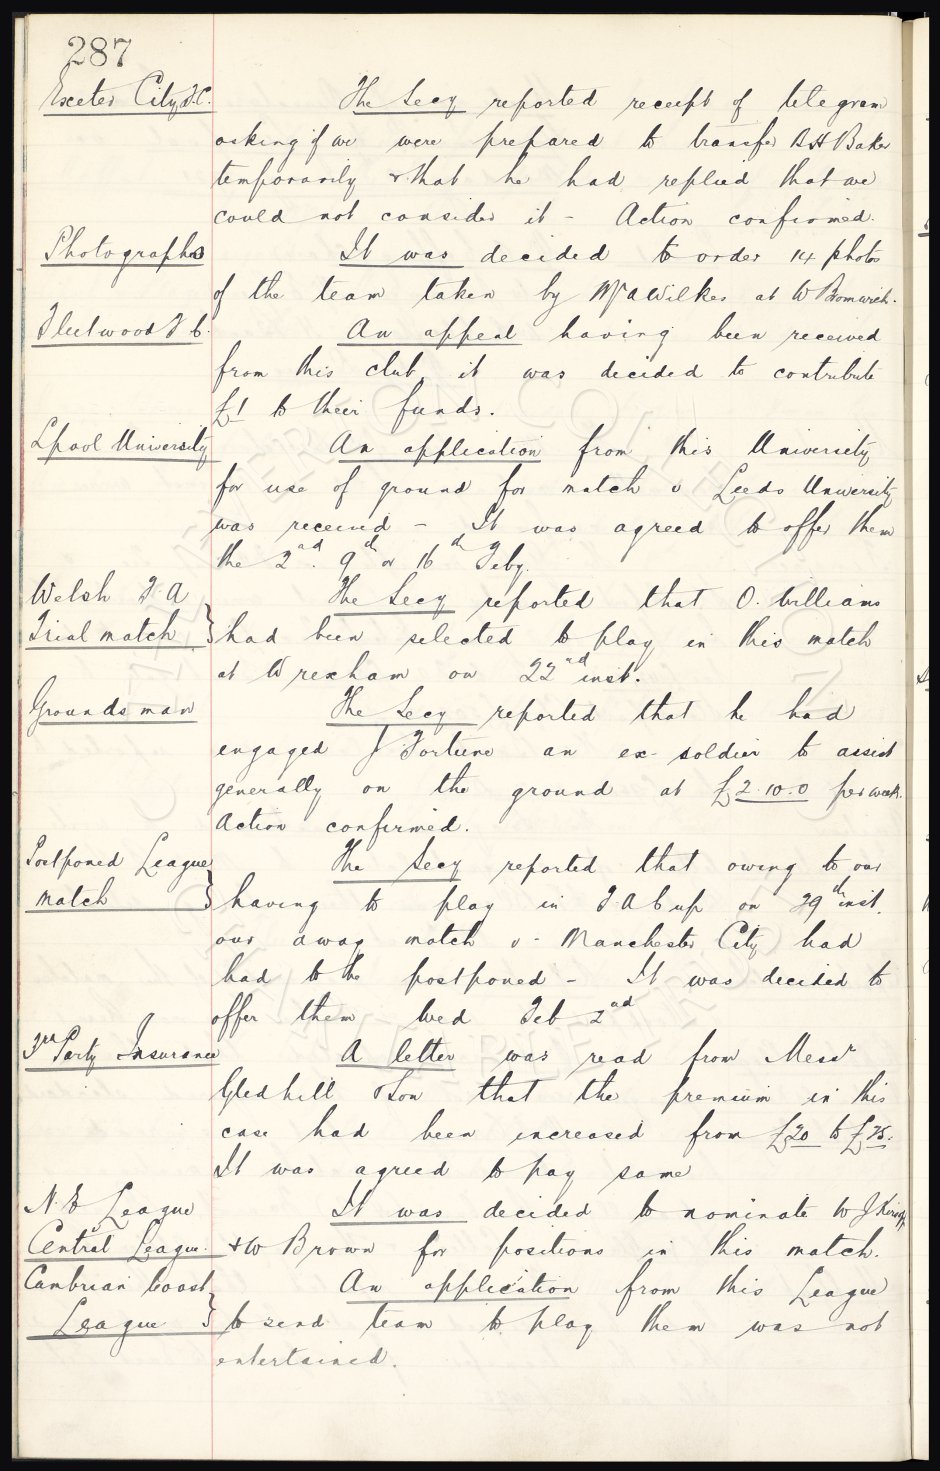 287
Exeter City F.C. The Secy reported receipt of telegram
asking if we were prepared to transfer B H Baker
temporarily & that he had replied that we
could not consider it - Action confirmed.
Photographs It was decided to order 14 photos
of the team taken by Mr A Wilkes at W Bromwich.
Fleetwood F C. An appeal having been received
from this club, it was decided to contribute
£1 to their funds.
Lpool University An application from this University
for use of ground for match v Leeds University
was received - It was agreed to offer them
the 2nd. 9th or 16th Feby.
Welsh F. A The Secy reported that O. Williams
Trial match } had been selected to play in this match
at Wrexham on 22nd inst.
Groundsman The Secy reported that he had
engaged J Fortune an ex-soldier to assist
generally on the ground at £2.10.0 per week.
Action confirmed.
Postponed League The Secy reported that owing to our
match } having to play in F A Cup on 29th inst.
our away match v- Manchester City had
had to the postponed - It was decided to
offer them Wed Feb 2nd
3rd Party Insurance A letter was read from Messrs
Gledhill & Son that the premium in this
case had been increased from £20 to £25.
It was agreed to pay same
N. E League It was decided to nominate W J
Central League. & W Brown for positions in this match.
Cambrian Coast An application from this League
League } to send team to play them was not
entertained.